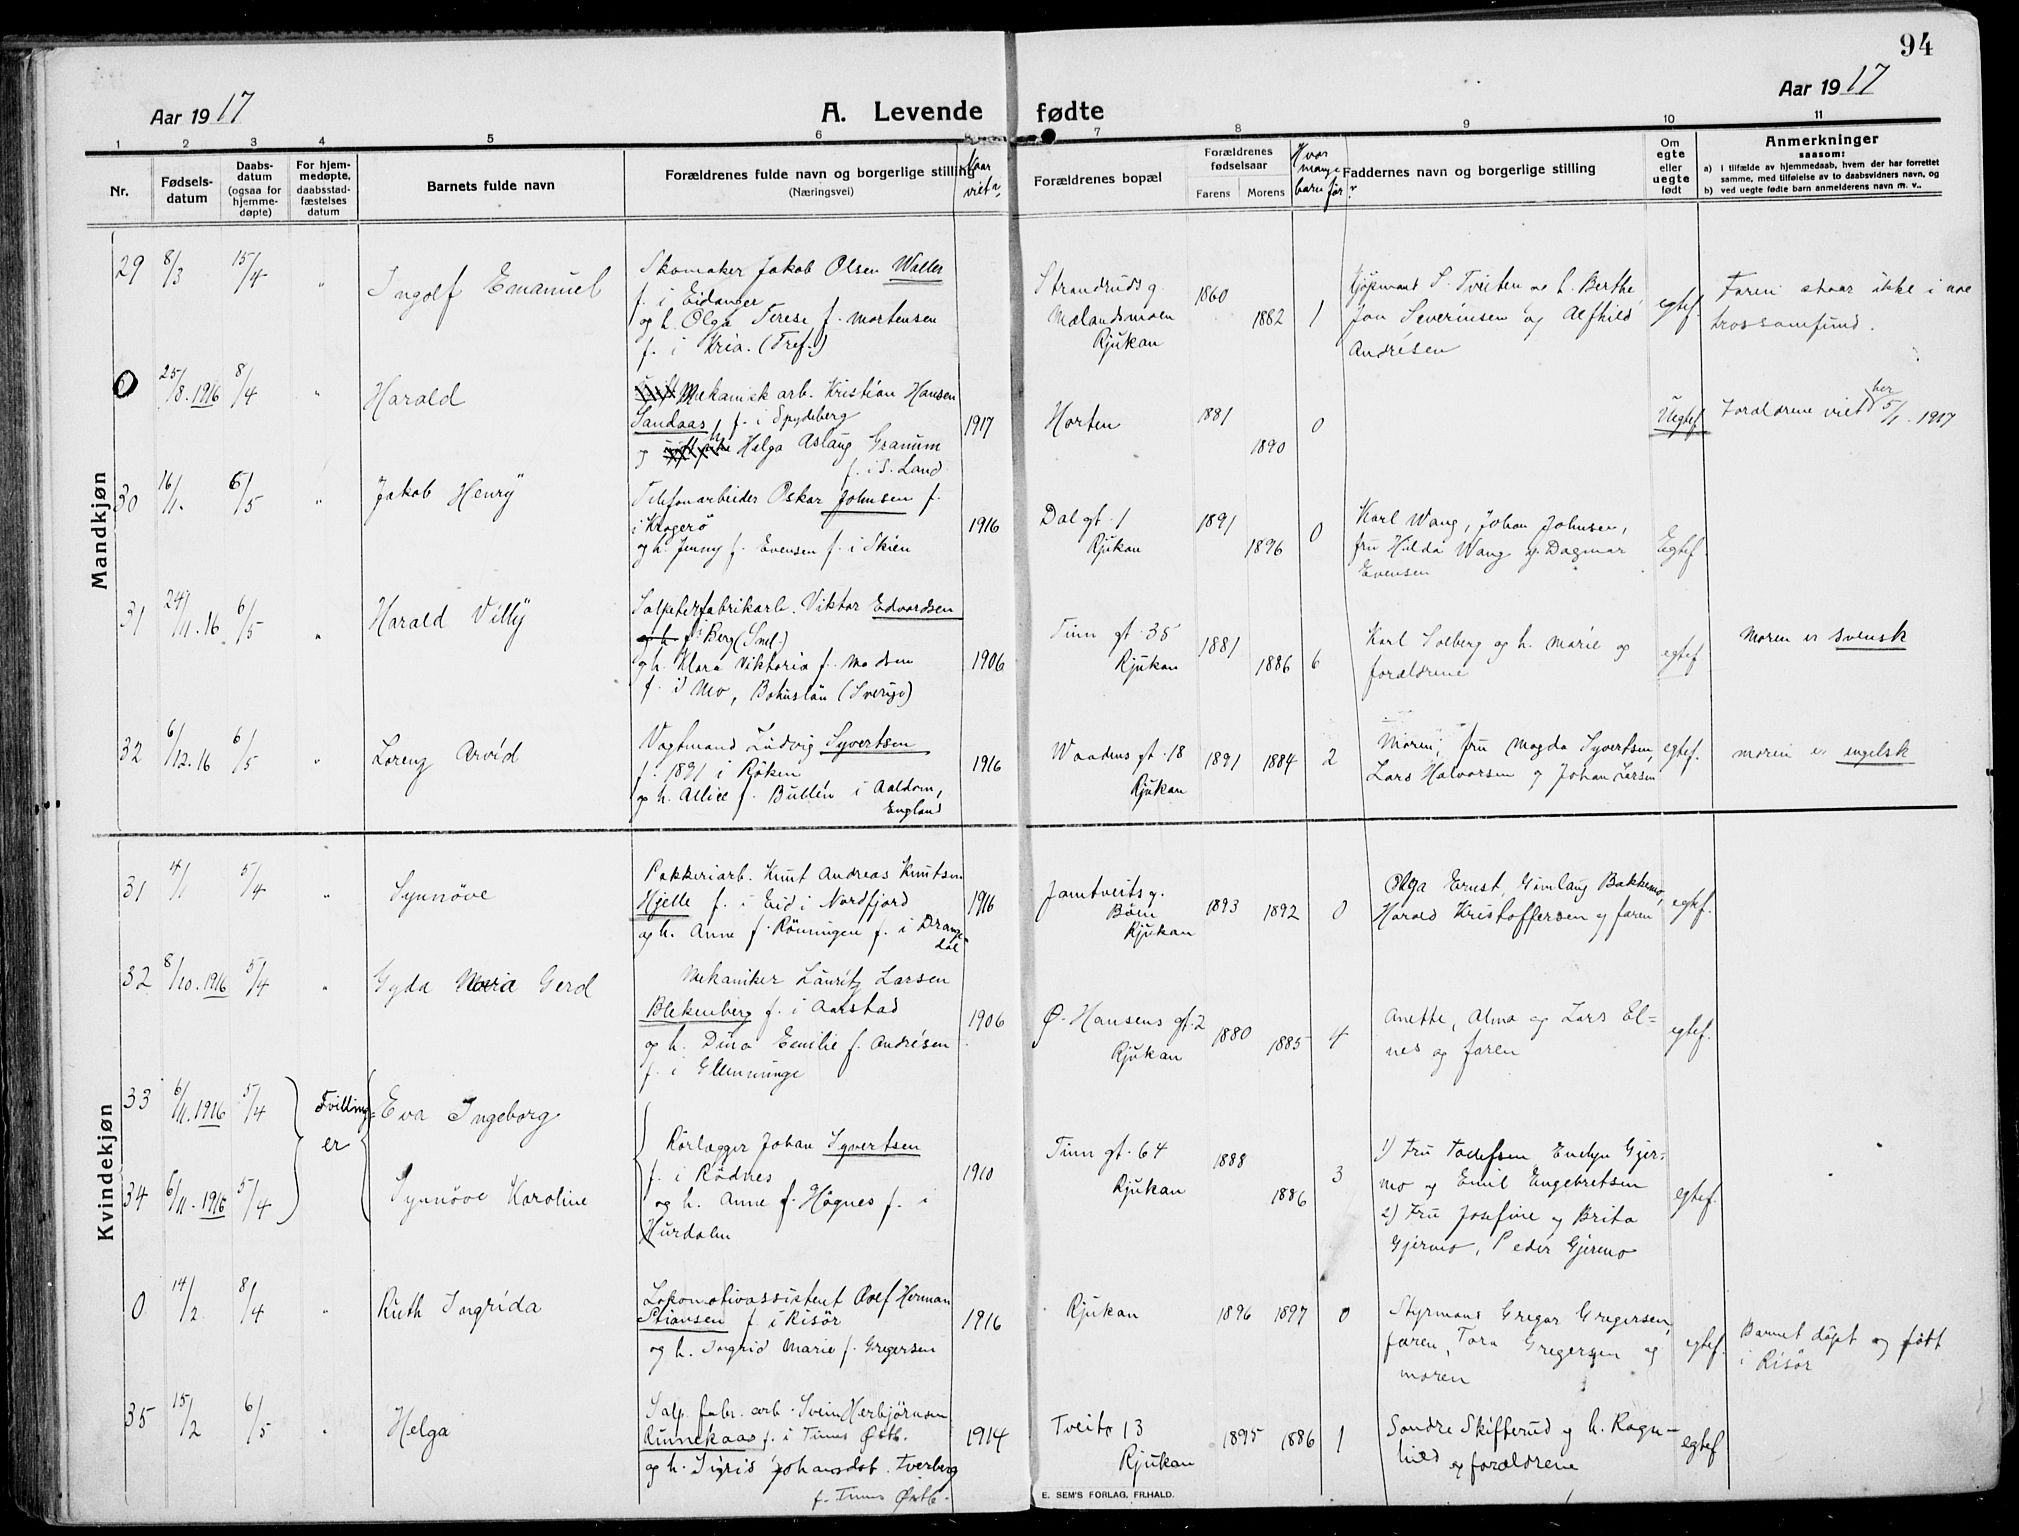 94
Aar 1917
A. Levende fødte
Aar 1917
1 2 3 4 5 6 7 8 9 10 11
Nr.
Fødsels-
datum
Daabs-
datum
(ogsaa for
hjemme-
døpte)
For hjem-
medøpte.
daabsstad-
fæstelses
datum
Barnets fulde navn
Forældrenes fulde navn og borgerlige stilling
(Næringsvei)
Naar
viet?
Forældrenes bopæl
Forældrenes
fødselsaar
Farens Morens
Hvor
mange
barn før?
Faddernes navn og borgerlige stilling
Om
egte
eller
uegte
født
Anmerkninger
saasom:
a) i tilfælde av hjemmedaab, hvem der har forrettet
samme, med tilføielse av to daabsvidners navn, og
b) ved uegte fødte barn anmelderens navn m. v..
Mandkjøn
29 8/3 15/4 " Ingolf Emanuel
Skomaker Jakob Olsen Waller
f. i Eidanger
og h. Olga Terese f. Mortensen
f. i Kria. (Tref.)
Strandruds g.
Mælandsmoen
Rjukan
1860 1882 1
S. Tveiten og h. Berthe,
Jon Severinsen og Alfhild
Andrésen
egtef.
Faren staar ikke i noe
trossamfund.
0 25/8.1916 8/4 " Harald
Mekanisk arb. Kristian Hansen
Sandaas, f. i Spydeberg
og Helga Aslaug Granum
f. i S. Land
1917 Horten 1881 1890 0
Uegtef.
Forældrene viet her 5/1. 1917
30 16/1. 6/5 " Jakob Henry
Telefonarbeider Oskar Johnsen f.
i Kragerö
og h. Jenny f. Evensen f. i Skien
1916 Dal gt. 1
Rjukan
1891 1896 0
Karl Wang, Johan Johnsen,
fru Hilda Wang og Dagmar
Evensen
Egtef.
31 24/11.16 6/5 " Harald Villy
Salpeterfabrikarb. Viktor Edvardsen
og h. f. i Berg (Sml.)
og h. Klara Viktoria f. Madsen
f. i Mo, Bohuslän (Sverige)
1906 Tinn gt. 35
Rjukan
1881 1886 6
Karl Solberg og h. Marie og
forældrene
egtef.
Moren er svensk
32 6/12.16 6/5 " Lorenz Arvid
Vagtmand Ludvig Syvertsen
f. 1891 i Røken
og h. Allice f. Bullén i Aaldom,
England
1916 Waadens gt. 18
Rjukan
1891 1884 2
Moren, fru Magda Syvertsen,
Lars Halvorsen og Johan Larsen
egtef.
moren er engelsk
Kvindekjøn
31 4/1 5/4 " Synnöve
Pakkeriarb. Knut Andreas Knutsen
Hjelle f. i Eid i Nordfjord
og h. Anne f. Rönningen f. i Drange-
dal
1916 Jamtveits g.
Böen
Rjukan
1893 1892 0
Olga Ernst, Gunlaug Bakkemo,
Harald Kristoffersen og faren
egtef.
32 8/10.1916 5/4 " Gyda Maria Gerd
Mekaniker Lauritz Larsen
Blekenberg f. i Aarstad
og h. Dina Emilie f. Andrésen
f. i Glemminge
1906 Ø. Hansens gt. 2
Rjukan
1880 1885 4
Anette, Alma og Lars El-
nes og faren
egtef.
33 6/11.1916 5/4 Tvilling-
er
Eva Ingeborg
34 6/11.1916 5/4 Synnöve Karoline
Rörlægger Johan Syvertsen
f. i Rödnes
og h. Anne f. Högnes f. i
Hurdalen
1910 Tinn gt. 64
Rjukan
1888 1886 3
1) Fru Evelyn Gjer-
mo og Emil Engebretsen
2) Fru Josefine og Brita
Gjermo, Peder Gjermo
egtef.
0 14/2 8/4 " Ruth Ingrida
Lokomotivassistent Olef Herman
Stiansen f. i Risör
og h. Ingrid Marie f. Gregersen
1916 Rjukan 1896 1897 0
Styrmans Gregar Gregersen,
faren, Tora Gregersen og
moren
egtef.
Barnet döpt og födt
i Risör
35 15/2 6/5 " Helga
Salp. fabr. arb. Svein Herbjörnsen
Rinnekaas f. i Tinns Østb.
og h. Sigrid Johansdat. Tverberg
f. Tinns Østb.
1914 Tveito 13
Rjukan
1895 1886 1
Sondre Skifterud og h. Ragn-
hild og forældrene
egtef.
E. SEM'S FORLAG, FR.HALD.